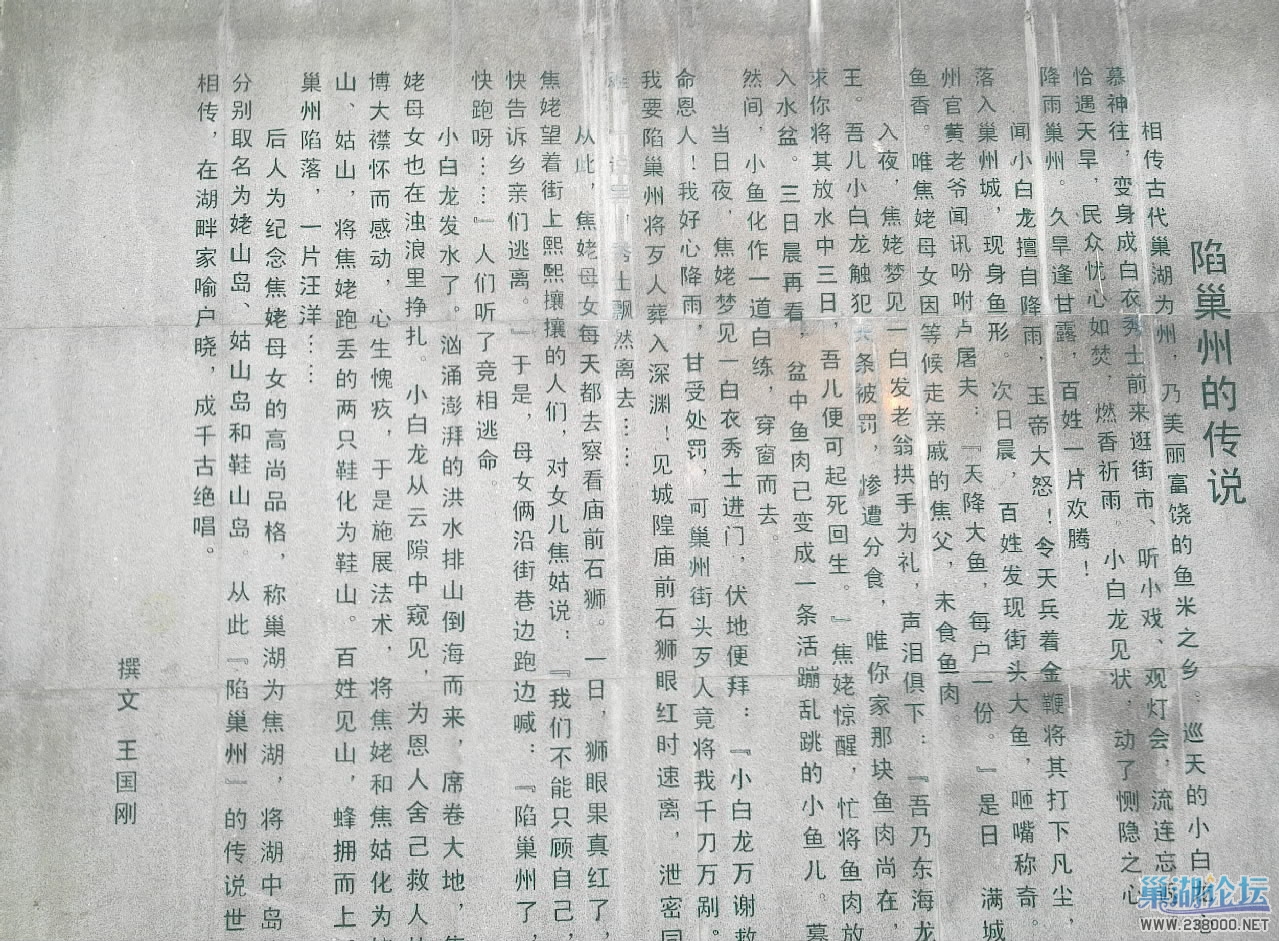 陷巢州的传说
相传古代巢湖为州，乃美丽富饶的鱼米之乡。巡天的小白
慕神往，变身成白衣秀士前来逛街市、听小戏、观灯会，流连忘
恰遇天旱，民众忧心如焚 燃香祈雨。小白龙见状，动了恻隐之心
降雨巢州。久旱逢甘露，百姓一片欢腾！
闻小白龙擅自降雨，玉帝大怒！令天兵着金鞭将其打下凡尘，
落入巢州城，现身鱼形。次日晨，百姓发现街头大鱼，咂嘴称奇。
州官黄老爷闻讯吩咐卢屠夫：『天降大鱼，每户一份。』是日 满城
鱼香。唯焦姥母女因等候走亲戚的焦父，未食鱼肉
入夜，焦姥梦见一白发老翁拱手为礼，声泪俱下：『吾乃东海龙
王。吾儿小白龙触犯天条被罚，惨遭分食，唯你家那块鱼肉尚在，
求你将其放水中三日，吾儿便可起死回生。』焦姥惊醒，忙将鱼肉放
入水盆。三日晨再看，盆中鱼肉已变成一条活蹦乱跳的小鱼儿。蓦
然间，小鱼化作一道白练，穿窗而去。
当日夜，焦姥梦见一白衣秀士进门，伏地便拜：『小白龙万谢救
命恩人！我好心降雨，甘受处罚，可巢州街头歹人竟将我千刀万剐。
我要陷巢州将歹人葬入深渊！见城隍庙前石狮眼红时速离，泄密同
秀士飘然离去……
从此，焦姥母女每天都去察看庙前石狮。一日，狮眼果真红了，
焦姥望着街上熙熙攘攘的人们，对女儿焦姑说：『我们不能只顾自己，
快告诉乡亲们逃离。』于是，母女俩沿街巷边跑边喊：『陷巢州了，
快跑呀……』人们听了竞相逃命。
小白龙发水了。汹涌澎湃的洪水排山倒海而来，席卷大地，
姥母女也在浊浪里挣扎。小白龙从云隙中窥见，为恩人舍己救人
博大襟怀而感动，心生愧疚，于是施展法术，将焦姥和焦姑化为
山、姑山，将焦姥跑丢的两只鞋化为鞋山。百姓见山，蜂拥而上
巢州陷落，一片汪洋……
后人为纪念焦姥母女的高尚品格，称巢湖为焦湖，将湖中岛
分别取名为姥山岛、姑山岛和鞋山岛。从此『陷巢州』的传说世
相传，在湖畔家喻户晓，成千古绝唱。
撰文 王国刚
巢湖论坛
WWW.238000.NET